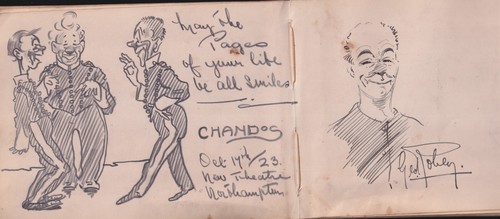 May the
Pages
of your life
be all Smiles
CHANDOS
Oct 17th/23.
New Theatre
Northampton.
Geo Robey.